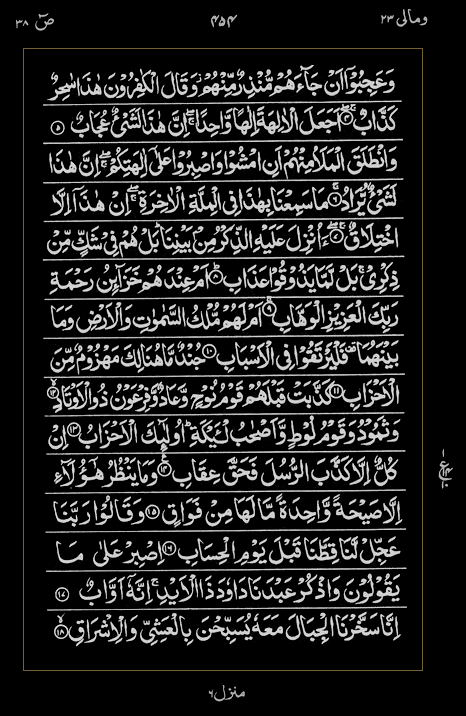 ومالی ۲۳ ۴۵۴ صٓ ۳۸
وَعَجِبُوْۤا اَنْ جَآءَهُمْ مُّنْذِرٌ مِّنْهُمْ ؗ وَقَالَ الْكٰفِرُوْنَ هٰذَا سٰحِرٌ
كَذَّابٌ ۴ اَجَعَلَ الْاٰلِهَةَ اِلٰهًا وَّاحِدًا ۚ اِنَّ هٰذَا لَشَیْءٌ عُجَابٌ ۵
وَانْطَلَقَ الْمَلَاُ مِنْهُمْ اَنِ امْشُوْا وَاصْبِرُوْا عَلٰۤی اٰلِهَتِكُمْ ۚ اِنَّ هٰذَا
لَشَیْءٌ یُّرَادُ ۶ مَا سَمِعْنَا بِهٰذَا فِی الْمِلَّةِ الْاٰخِرَةِ ۚ اِنْ هٰذَاۤ اِلَّا
اخْتِلَاقٌ ۷ ءَاُنْزِلَ عَلَیْهِ الذِّكْرُ مِنْۢ بَیْنِنَا ؕ بَلْ هُمْ فِیْ شَكٍّ مِّنْ
ذِكْرِیْ ۚ بَلْ لَّمَّا یَذُوْقُوْا عَذَابِ ۸ اَمْ عِنْدَهُمْ خَزَآىِٕنُ رَحْمَةِ
رَبِّكَ الْعَزِیْزِ الْوَهَّابِ ۹ اَمْ لَهُمْ مُّلْكُ السَّمٰوٰتِ وَالْاَرْضِ وَمَا
بَیْنَهُمَا ۫ فَلْیَرْتَقُوْا فِی الْاَسْبَابِ ۱۰ جُنْدٌ مَّا هُنَالِكَ مَهْزُوْمٌ مِّنَ
الْاَحْزَابِ ۱۱ كَذَّبَتْ قَبْلَهُمْ قَوْمُ نُوْحٍ وَّعَادٌ وَّفِرْعَوْنُ ذُو الْاَوْتَادِ ۱۲
وَثَمُوْدُ وَقَوْمُ لُوْطٍ وَّاَصْحٰبُ لْـَٔیْكَةِ ؕ اُولٰٓىِٕكَ الْاَحْزَابُ ۱۳ اِنْ
كُلٌّ اِلَّا كَذَّبَ الرُّسُلَ فَحَقَّ عِقَابِ ۱۴ وَمَا یَنْظُرُ هٰۤؤُلَآءِ
اِلَّا صَیْحَةً وَّاحِدَةً مَّا لَهَا مِنْ فَوَاقٍ ۱۵ وَقَالُوْا رَبَّنَا
عَجِّلْ لَّنَا قِطَّنَا قَبْلَ یَوْمِ الْحِسَابِ ۱۶ اِصْبِرْ عَلٰی مَا
یَقُوْلُوْنَ وَاذْكُرْ عَبْدَنَا دَاوٗدَ ذَا الْاَیْدِ ۚ اِنَّهٗۤ اَوَّابٌ ۱۷
اِنَّا سَخَّرْنَا الْجِبَالَ مَعَهٗ یُسَبِّحْنَ بِالْعَشِیِّ وَالْاِشْرَاقِ ۱۸
منزل ۶